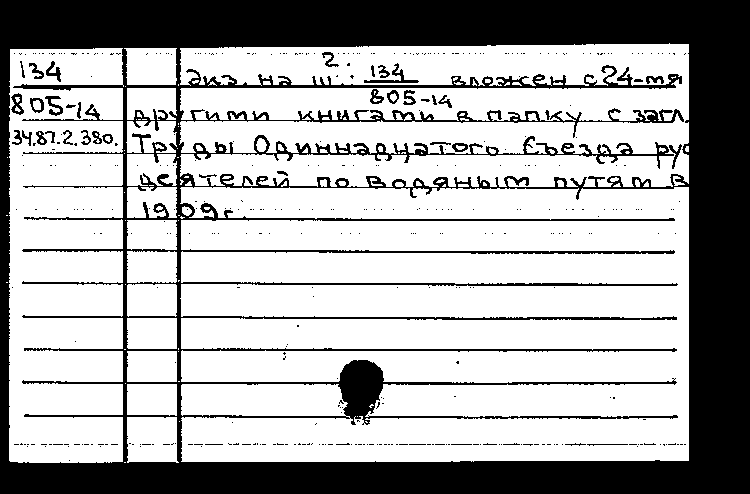 2.
134
805-14
34.87.2.380.
Экз. на ш.: 134/805-14 вложен с 24-мя
другими книгами в папку с загл.
Труды Одиннадцатого Съезда рус
деятелей по водяным путям в
1909г.